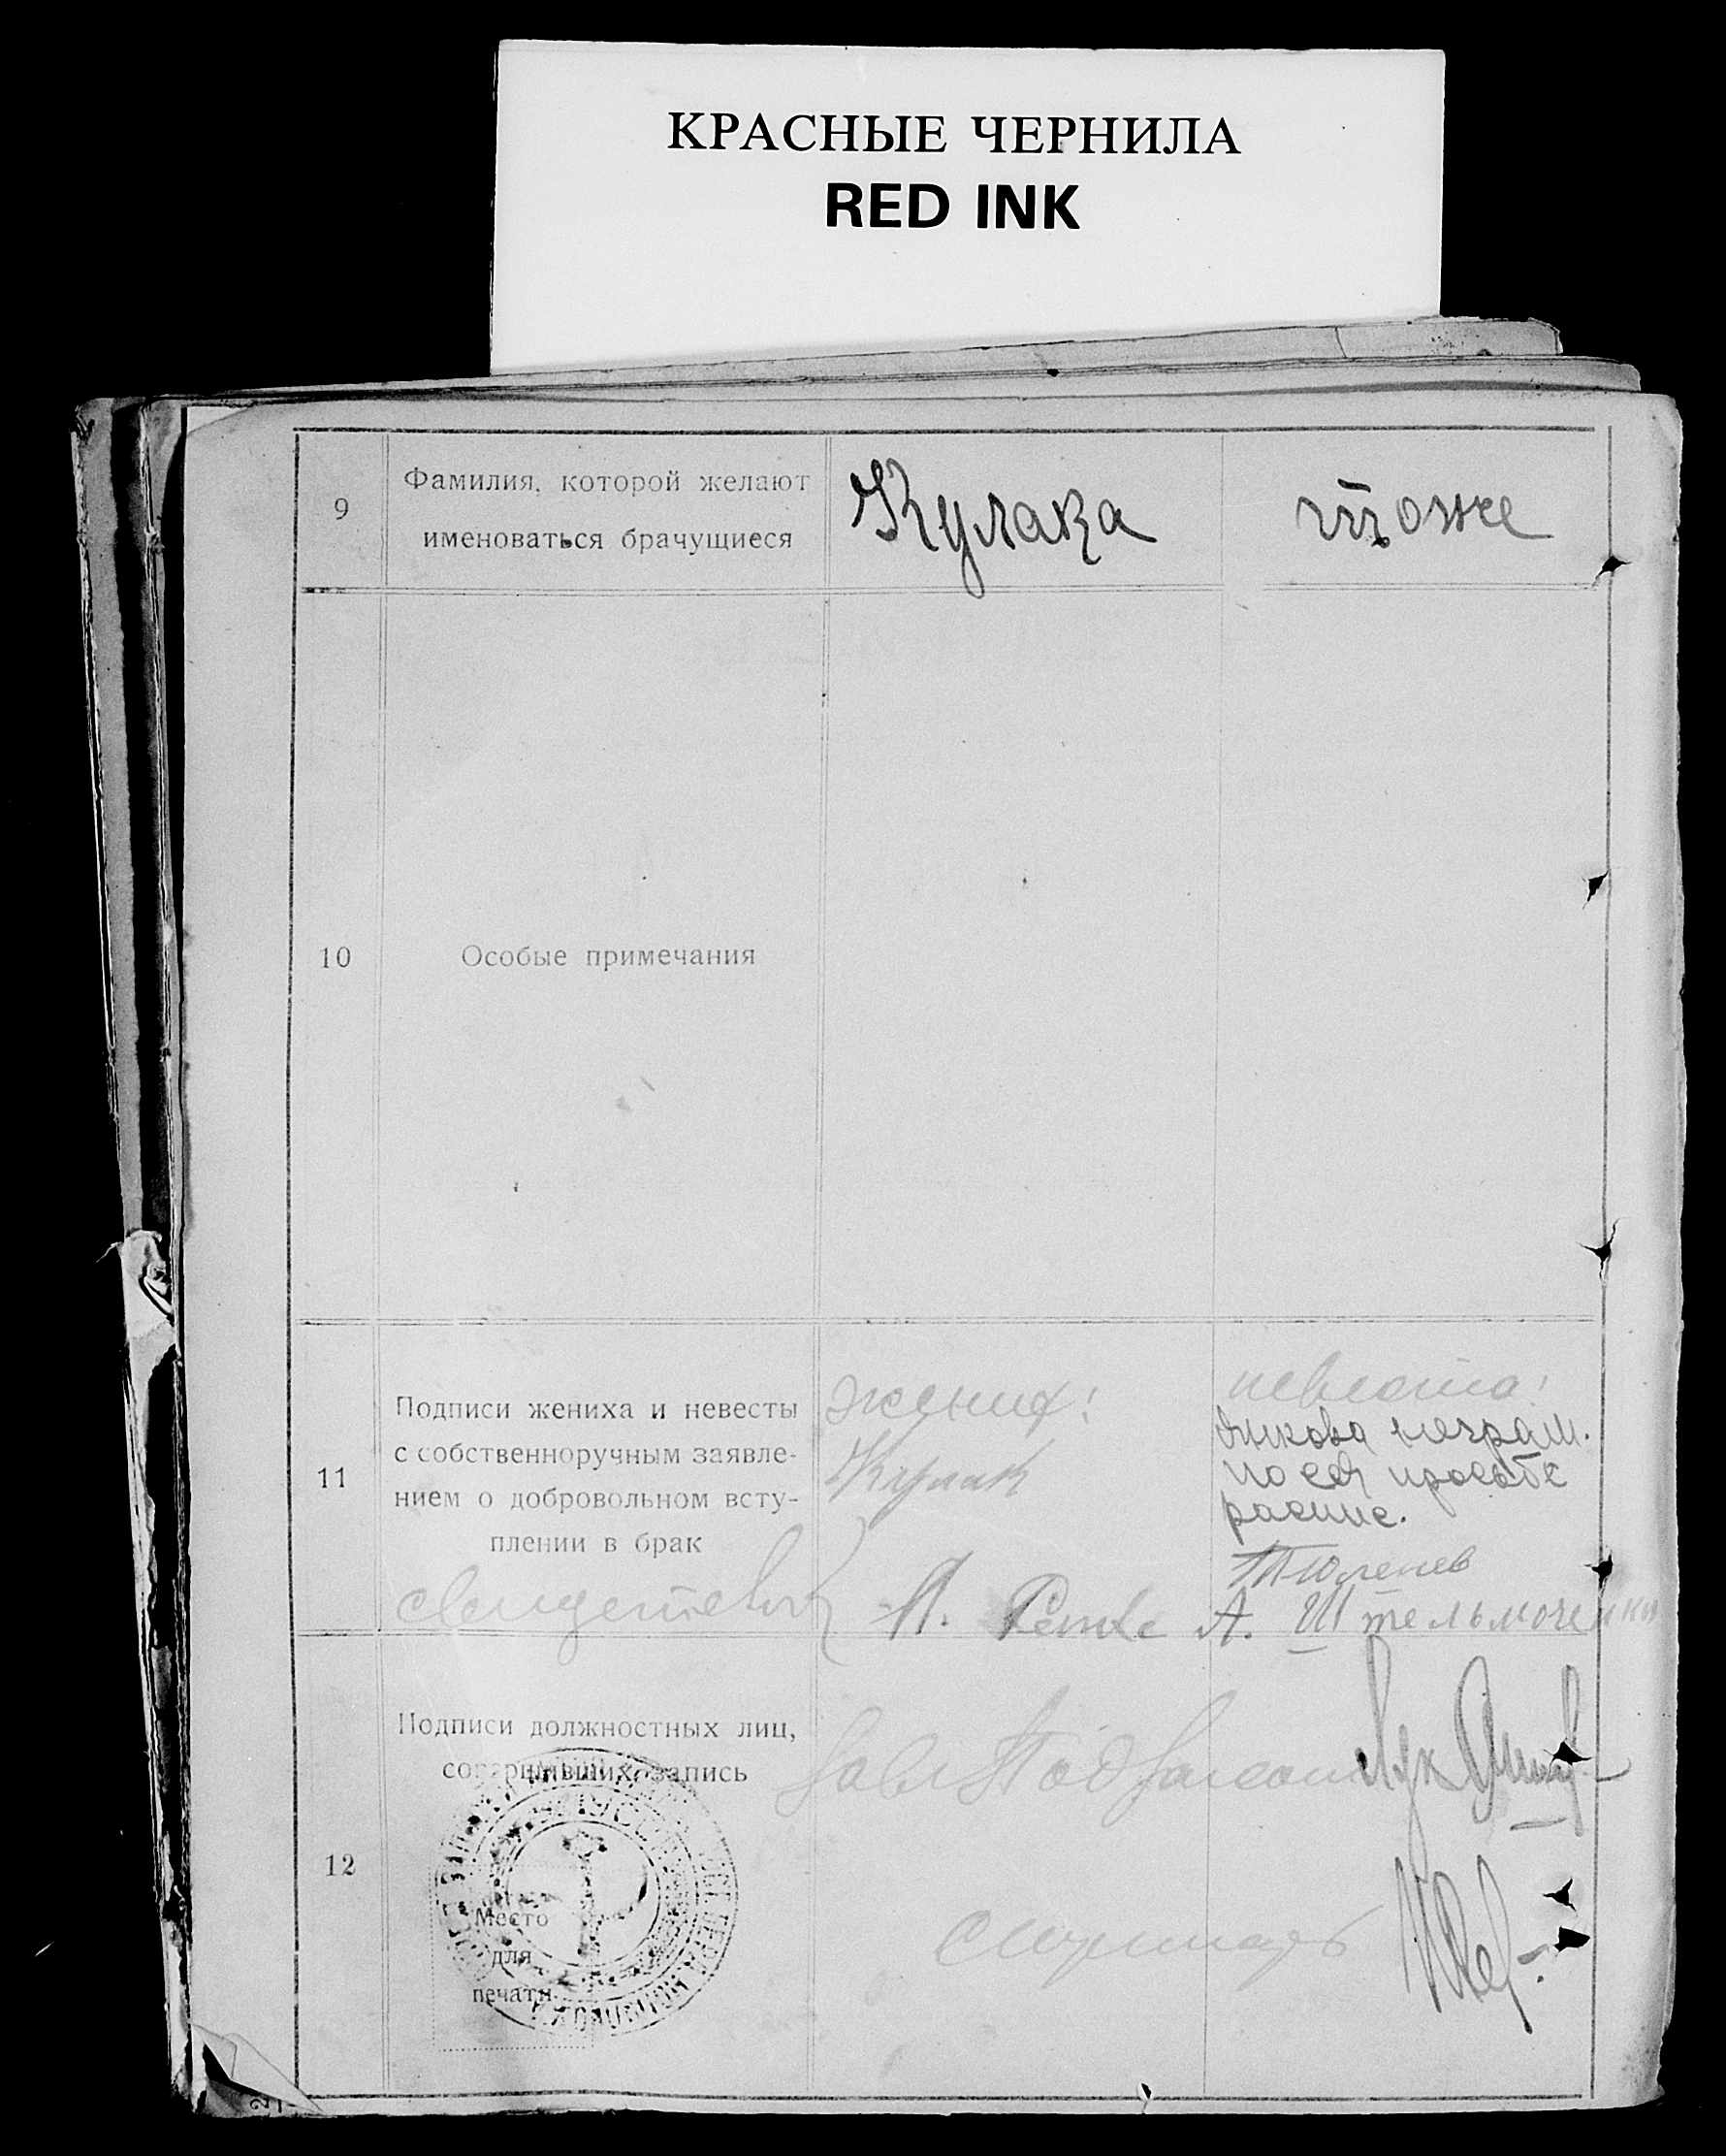 КРАСНЫЕ ЧЕРНИЛА
RED INK
9
Фамилия, которой желают
именоваться брачущиеся
Кулака
тоже
10
Особые примечания
11
Подписи жениха и невесты
с собственноручным заявле-
нием о добровольном всту-
плении в брак
жених:
Кулак
невеста:
неграм.
по ея просьбе
распис.
Свидетели
А.
А. Штельмоченко
12
Подписи должностных лиц,
совершивших запись
Зав.
Место
для
печати